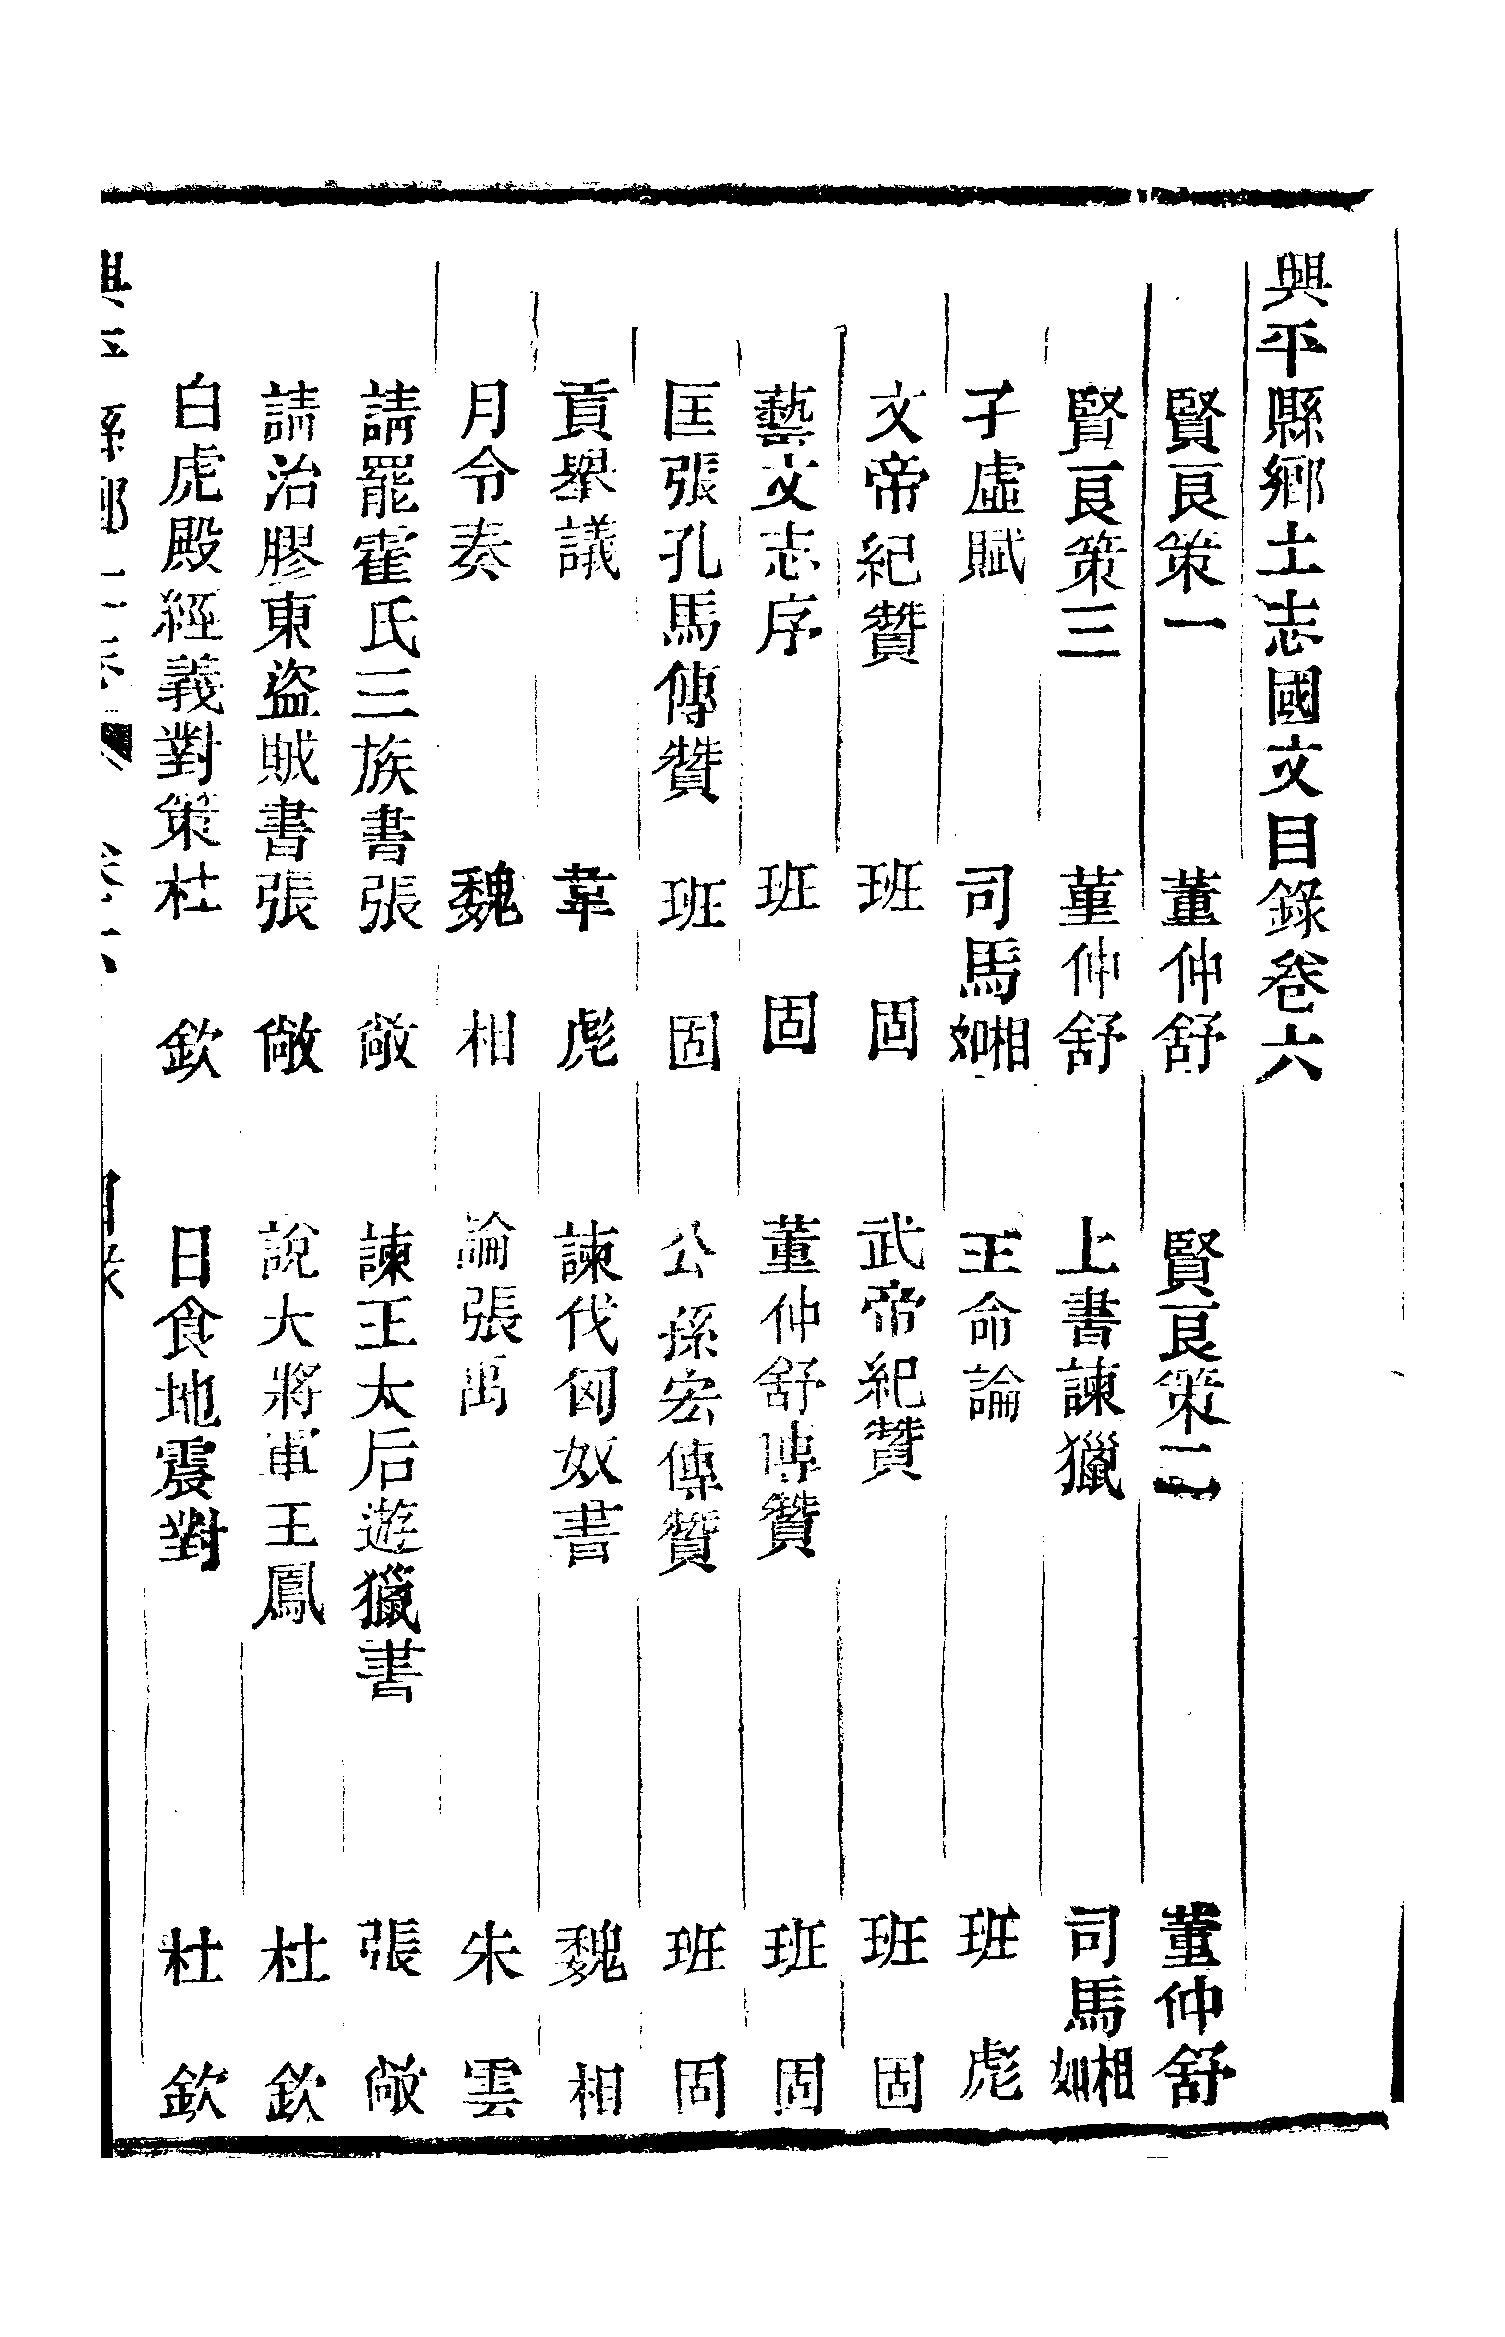 興平縣鄉土志國文目錄卷六
賢良策一 董仲舒 賢良策二 董仲舒
賢良策三 董仲舒 上書諫獵 司馬相如
子虛賦 司馬相如 王命論 班彪
文帝紀贊 班固 武帝紀贊 班固
藝文志序 班固 董仲舒傳贊 班固
匡張孔馬傳贊 班固 公孫宏傳贊 班固
貢舉議 韋彪 諫伐匈奴書 魏相
月令奏 魏相 論張禹 朱雲
請罷霍氏三族書 張敞 諫王太后遊獵書 張敞
請治膠東盜賊書 張敞 說大將軍王鳳 杜欽
白虎殿經義對策 杜欽 日食地震對 杜欽